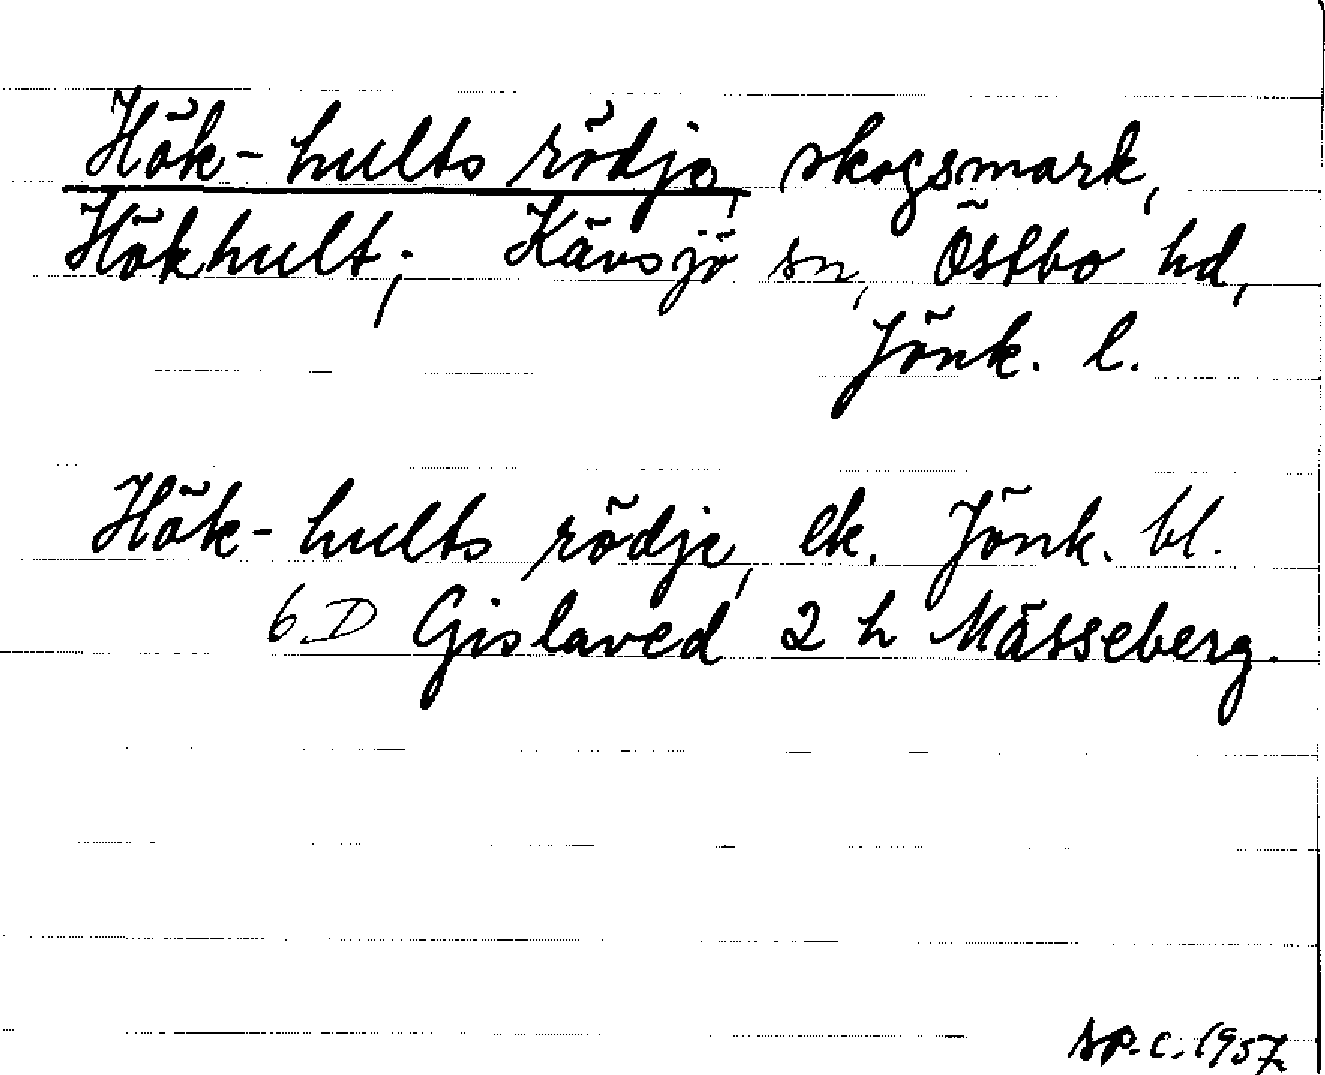 Hök-hults rödje, skogsmark,
Hökhult; Kävsjö sn, Östbo hd,
Jönk. l.
Hök-hults rödje, ek. Jönk. bl.
6 D Gislaved 2 h Mässeberg.
AP.C.1957